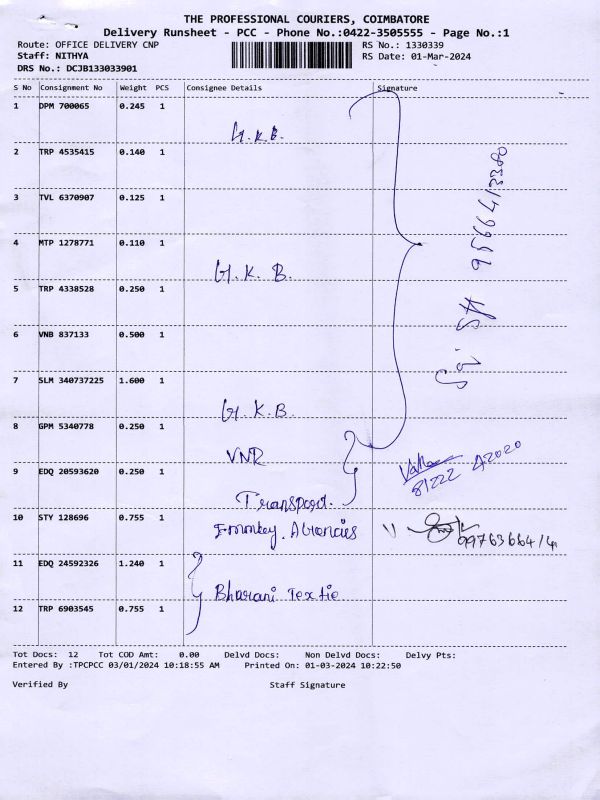 THE PROFESSIONAL COURIERS, COIMBATORE
Delivery Runsheet - PCC - Phone No.:0422-3505555 - Page No.:1
Route: OFFICE DELIVERY CNP
RS No.: 1330339
Staff: NITHYA
RS Date: 01-Mar-2024
DRS No.: DCJB133033901
S No Consignment No Weight PCS Consignee Details Signature
1 DPM 700065 0.245 1
2 TRP 4535415 0.140 1
3 TVL 6370907 0.125 1
4 MTP 1278771 0.110 1
K. B.
5 TRP 4338528 0.250 1
6 VNB 837133 0.500 1
7 SLM 340737225 1.600 1
K. B.
8 GPM 5340778 0.250 1
VNR
9 EDQ 20593620 0.250 1
Transport.
10 STY 128696 0.755 1
11 EDQ 24592326 1.240 1
Bharani Textie
12 TRP 6903545 0.755 1
Tot Docs: 12 Tot COD Amt: 0.00 Delvd Docs: Non Delvd Docs: Delvy Pts:
Entered By :TPCPCC 03/01/2024 10:18:55 AM Printed On: 01-03-2024 10:22:50
Verified By Staff Signature